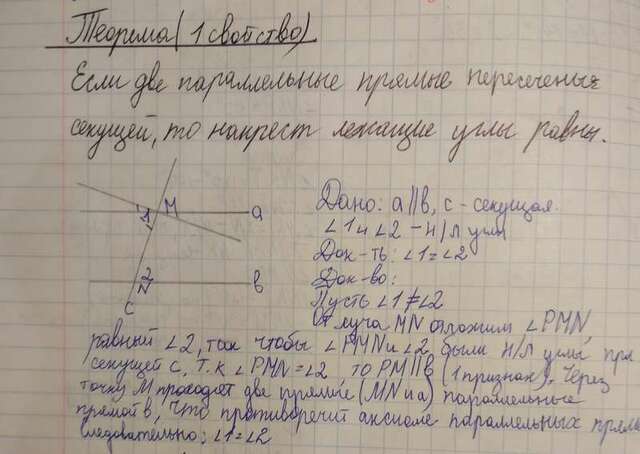 Теорема (1 свойство)
Если две параллельные прямые пересечены
секущей, то накрест лежащие углы равны.
M
1
a
2
N
b
c
Дано: a||b, c - секущая.
∠1 и ∠2 - н/л углы
Док-ть: ∠1=∠2
Док-во:
Пусть ∠1≠∠2
От луча MN отложим ∠PMN,
равный ∠2, так чтобы ∠PMN и ∠2 были н/л углы при
секущей c, т.к ∠PMN=∠2 то PM||b (1 признак). Через
точку M проходят две прямые (MN и a) параллельные
прямой b, что противоречит аксиоме параллельных прямы
следовательно: ∠1=∠2